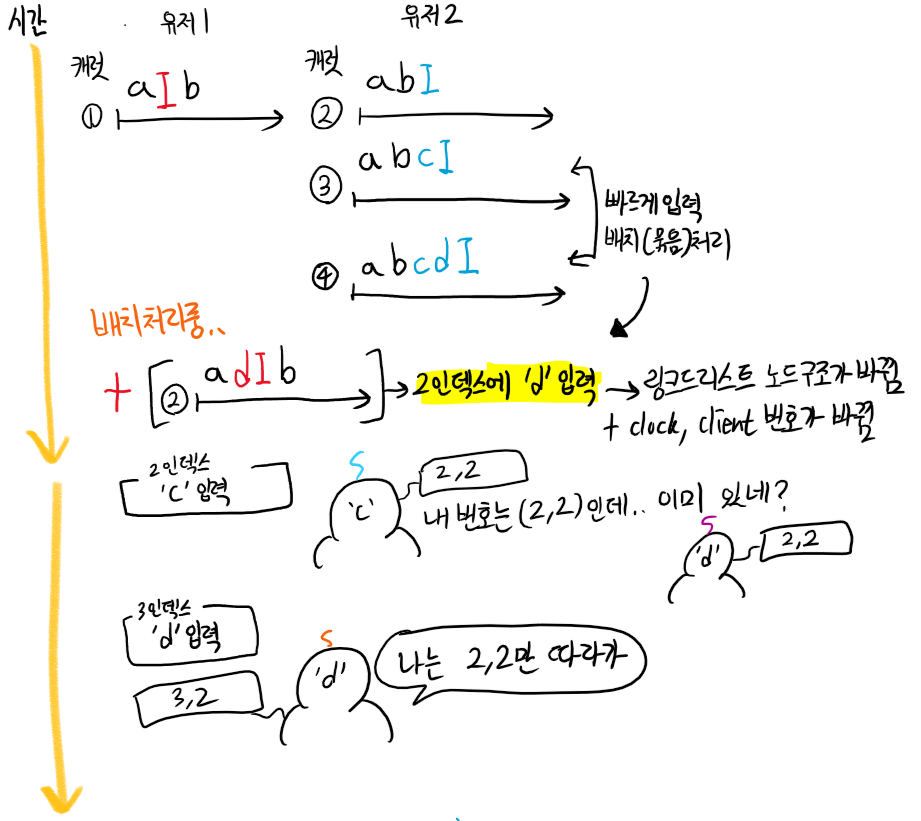 시간
유저1
유저2
캐럿
① aIb
캐럿
② abI
③ abcI
④ abcdI
빠르게 입력
배치(묶음)처리
배치처리중..
+ [② adIb] → 2인덱스에 'd' 입력 → 링크드리스트 노드구조가 바뀜
+ clock, client 번호가 바뀜
2인덱스
'C' 입력
'c'
2,2
내 번호는 (2,2)인데.. 이미 있네?
'd'
2,2
3인덱스
'd' 입력
3,2
'd'
나는 2,2만 따라가